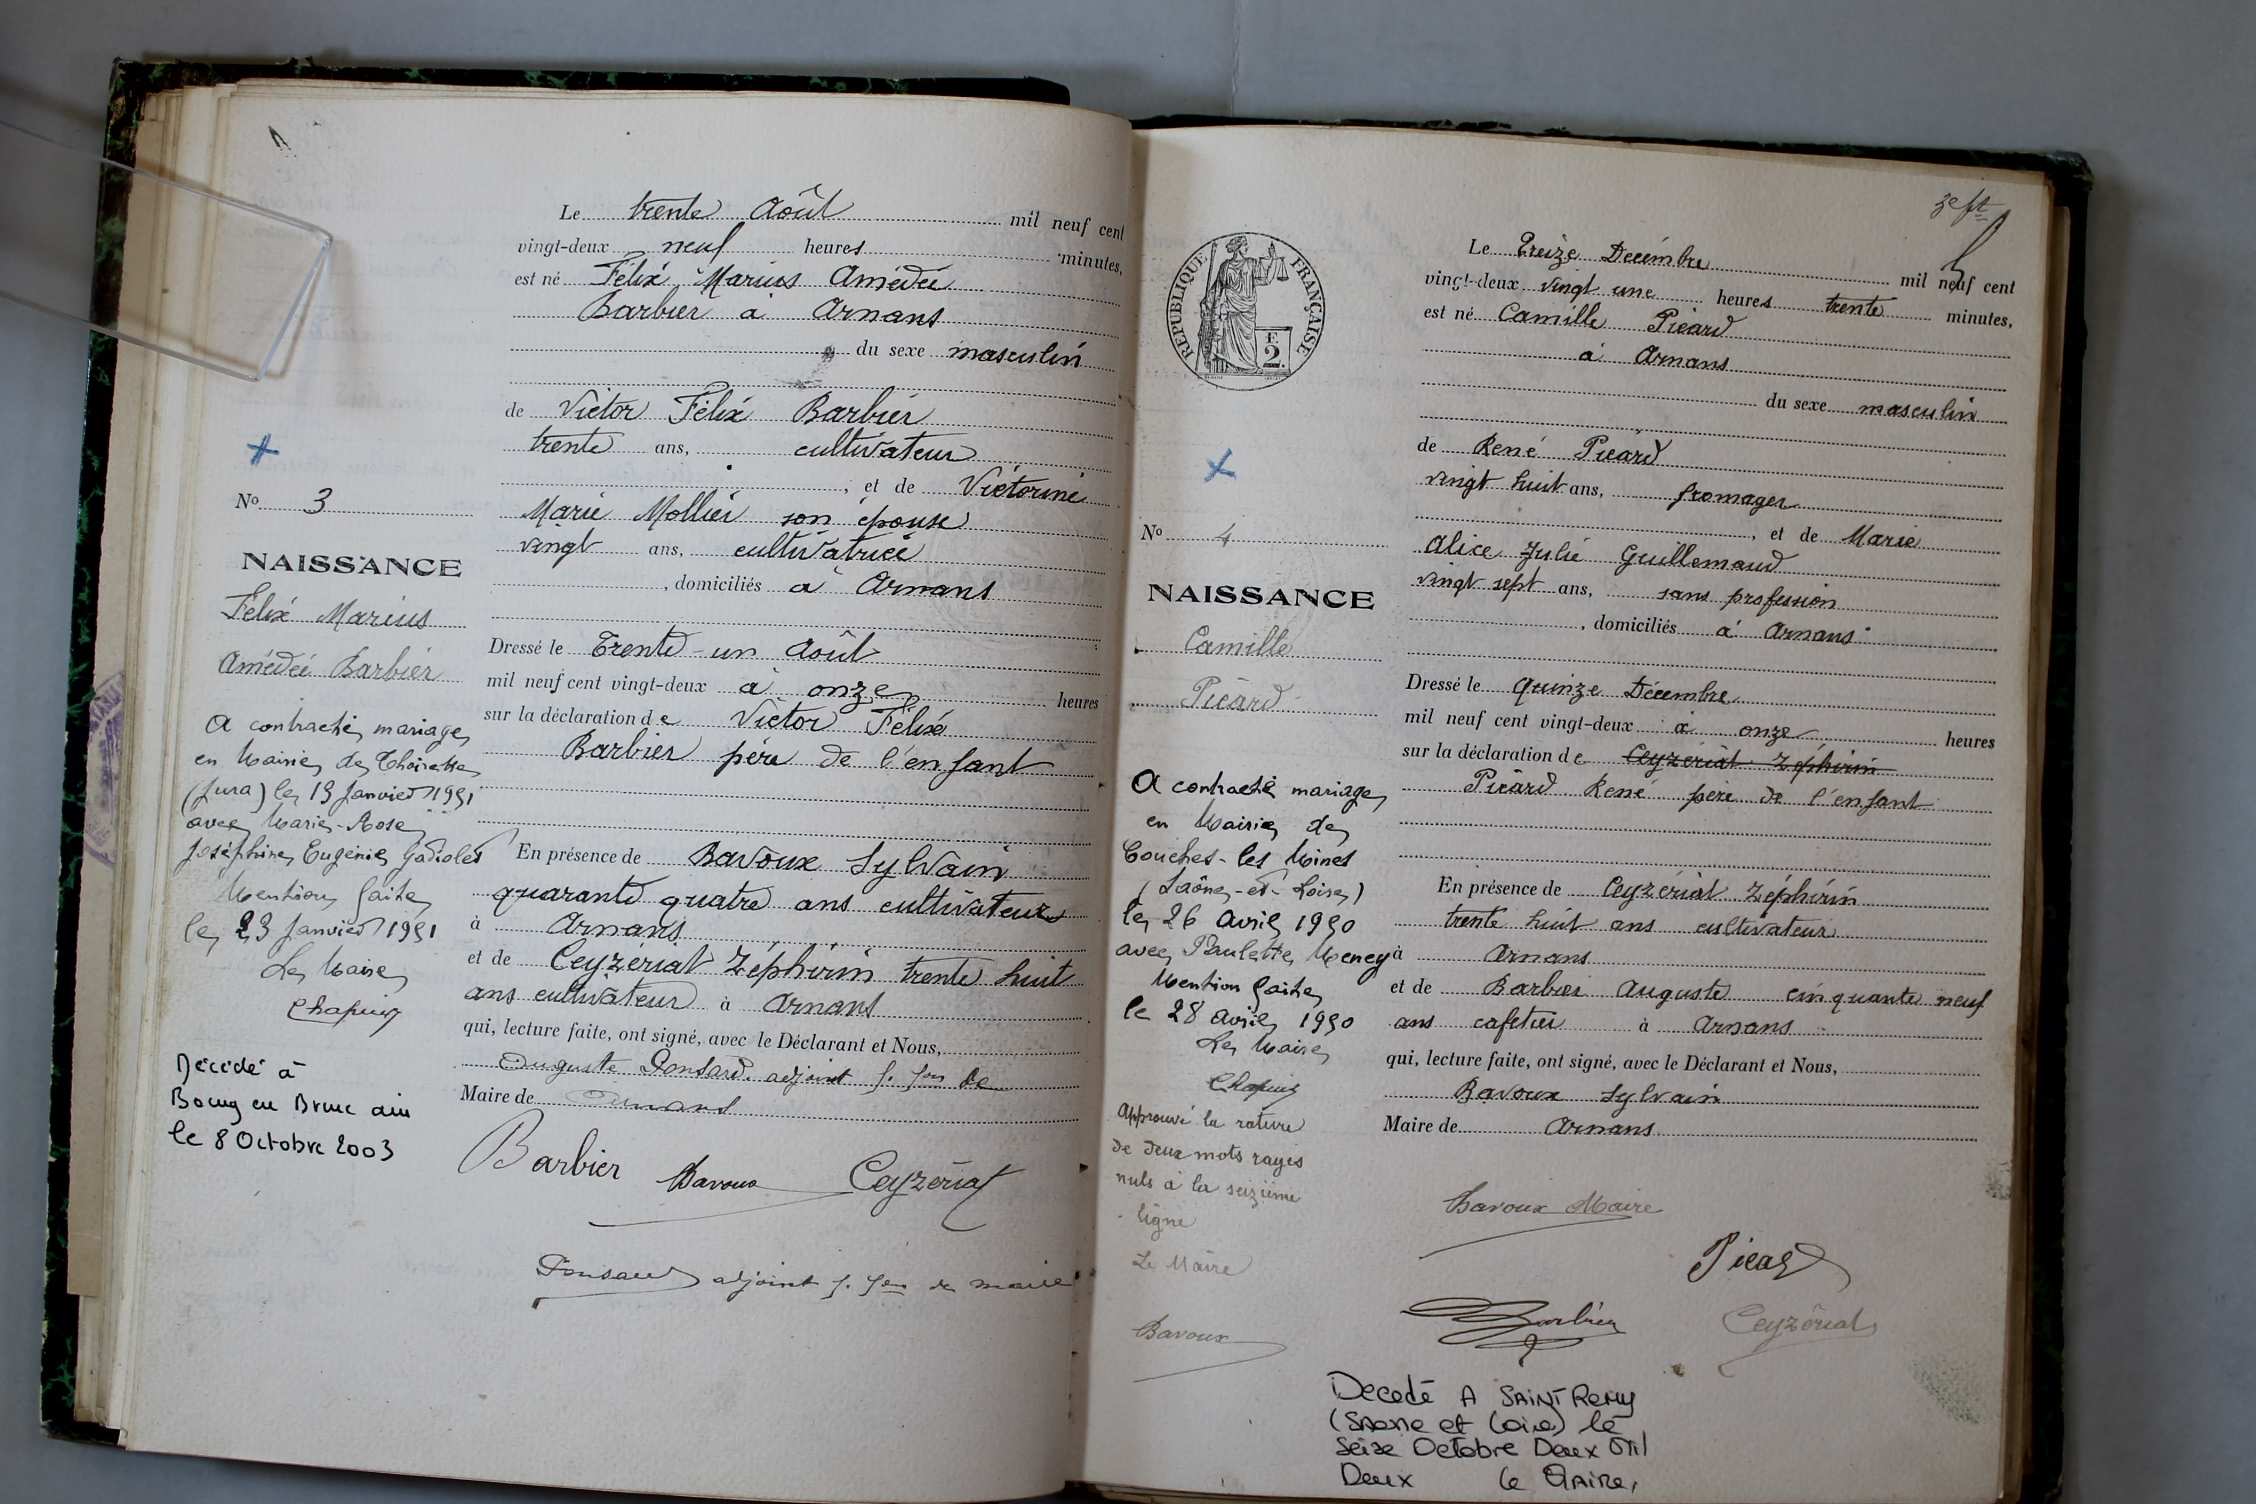 Le trente Août mil neuf cent
vingt-deux neuf heures minutes,
est né Félix Marius Amédée
Barbier à Arnans
du sexe masculin
de Victor Félix Barbier
trente ans, cultivateur
, et de Victorine
Marie Mollier son épouse
vingt ans, cultivatrice
, domiciliés à Arnans
Dressé le Trente-un Août
mil neuf cent vingt-deux à onze heures
sur la déclaration de Victor Félix
Barbier père de l'enfant
En présence de Bavoux Sylvain
quarante quatre ans cultivateur
à Arnans
et de Ceyzériat Zéphirin trente huit
ans cultivateur à Arnans
qui, lecture faite, ont signé, avec le Déclarant et Nous,
Auguste Ponsard adjoint f. fon de
Maire de Arnans
Barbier Bavoux Ceyzériat
Ponsard adjoint f. fon de maire
No 3
NAISSANCE
Félix Marius
Amédée Barbier
A contracté mariage
en Mairie de Thoirette
(Jura) le 13 Janvier 1951
avec Marie-Rose
Joséphine Eugénie
Mention faite
le 23 Janvier 1951
Le Maire
Chapuis
Décédé à
Bourg en Bresse ain
le 8 Octobre 2003
REPUBLIQUE FRANÇAISE
F.
2.
No 4
NAISSANCE
Camille
Picard
A contracté mariage
en Mairie de
Couches-les Mines
(Saône-et-Loire)
le 26 avril 1950
avec Paulette Meney
Mention faite
le 28 avril 1950
Le Maire
Chapuis
Approuvé la rature
de deux mots rayés
nuls à la seizième
ligne
Le Maire
Bavoux
3e ft
Le Treize Décembre mil neuf cent
vingt-deux vingt une heures trente minutes,
est né Camille Picard
à Arnans
du sexe masculin
de René Picard
vingt huit ans, fromager
, et de Marie
Alice Julie Guillemaud
vingt sept ans, sans profession
, domiciliés à Arnans
Dressé le quinze Décembre
mil neuf cent vingt-deux à onze heures
sur la déclaration de Ceyzériat Zéphirin
Picard René père de l'enfant
En présence de Ceyzériat Zéphirin
trente huit ans cultivateur
à Arnans
et de Barbier Auguste cinquante neuf
ans cafetier à Arnans
qui, lecture faite, ont signé, avec le Déclarant et Nous,
Bavoux Sylvain
Maire de Arnans
Bavoux Maire
Picard
Barbier Ceyzériat
Decedé A SAINT Remy
(SAone et Loire) le
Seize Octobre Deux Mil
Deux Le Maire,